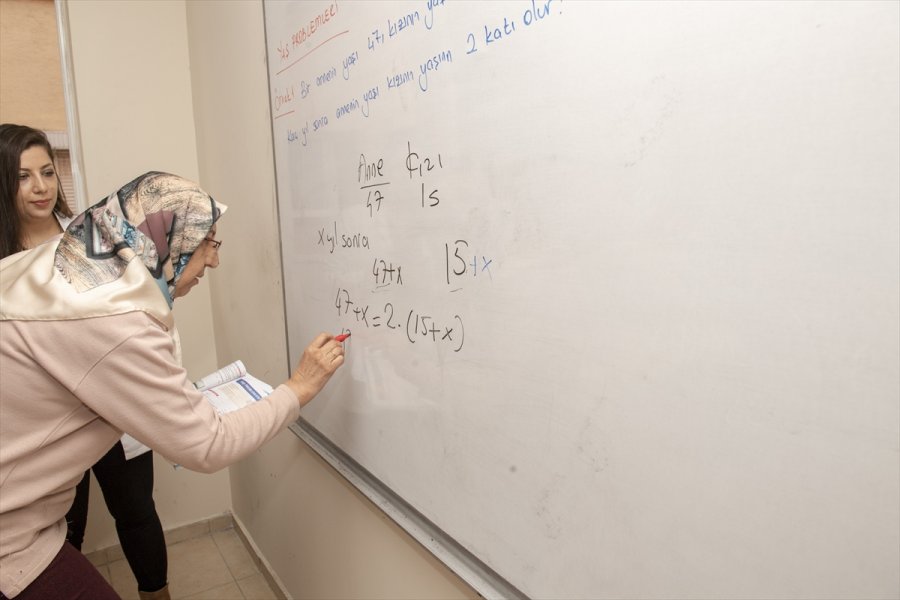 YAŞ PROBLEMLERİ
Örnek) Bir annenin yaşı 47, kızının
Kaç yıl sonra annenin yaşı kızının yaşının 2 katı olur?
Anne Kızı
47 15
x yıl sonra
47+x 15+x
47+x=2.(15+x)